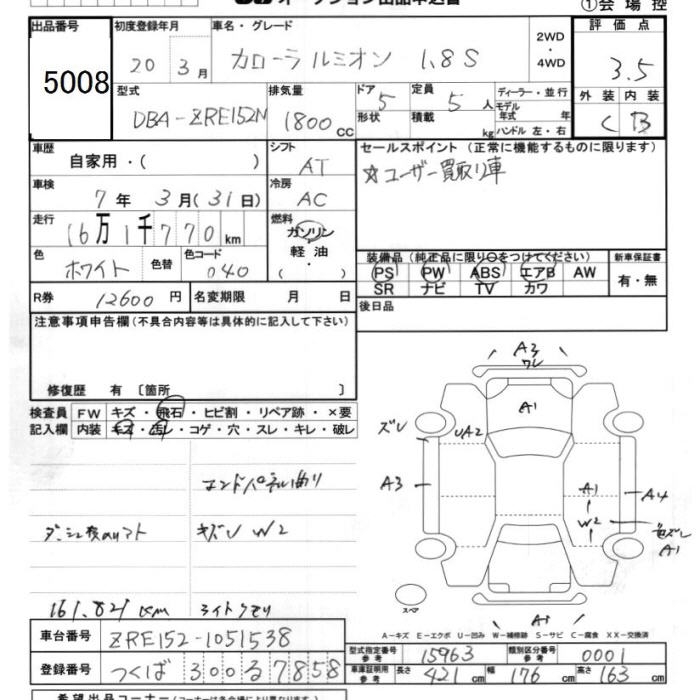 ①会場控
出品番号 5008
初度登録年月 20 3月
車名・グレード カローラルミオン 1.8S
2WD
・
4WD
評価点 3.5
型式 DBA-ZRE152N
排気量 1800 cc
ドア 5
形状
定員 5 人
積載 kg
ディーラー・並行
モデル年式 年
ハンドル 左・右
外装 内装
C B
車歴 自家用・( )
シフト AT
セールスポイント (正常に機能するものに限ります)
☆ユーザー買取り車
車検 7年 3月(31日)
冷房 AC
走行 16万1千770km
燃料 ガソリン
軽油
・( )
色 ホワイト 色替
色コード 040
装備品 (純正品に限り○をつけてください)
PS PW ABS エアB AW
SR ナビ TV カワ
新車保証書
有・無
R券 12600円
名変期限 月 日
後日品
注意事項申告欄 (不具合内容等は具体的に記入して下さい)
修復歴 有 〔箇所 〕
検査員 FW キズ・飛石・ヒビ割・リペア跡・×要
記入欄 内装 キズ・汚レ・コゲ・穴・スレ・キレ・破レ
エンドパネル曲り
キズU W2
161.821km ライトクモリ
A3
ワレ
A1
ズレ
UA2
A3
A1
W2
A4
色ズレ
A1
スペア
A1
A-キズ E-エクボ U-凹み W-補修跡 S-サビ C-腐食 XX-交換済
車台番号 ZRE152-1051538
登録番号 つくば 300 る 7858
型式指定番号 参考 15963
類別区分番号 参考 0001
車庫証明用 参考 長さ 421cm 幅 176cm 高さ 163cm
希望出品コーナー